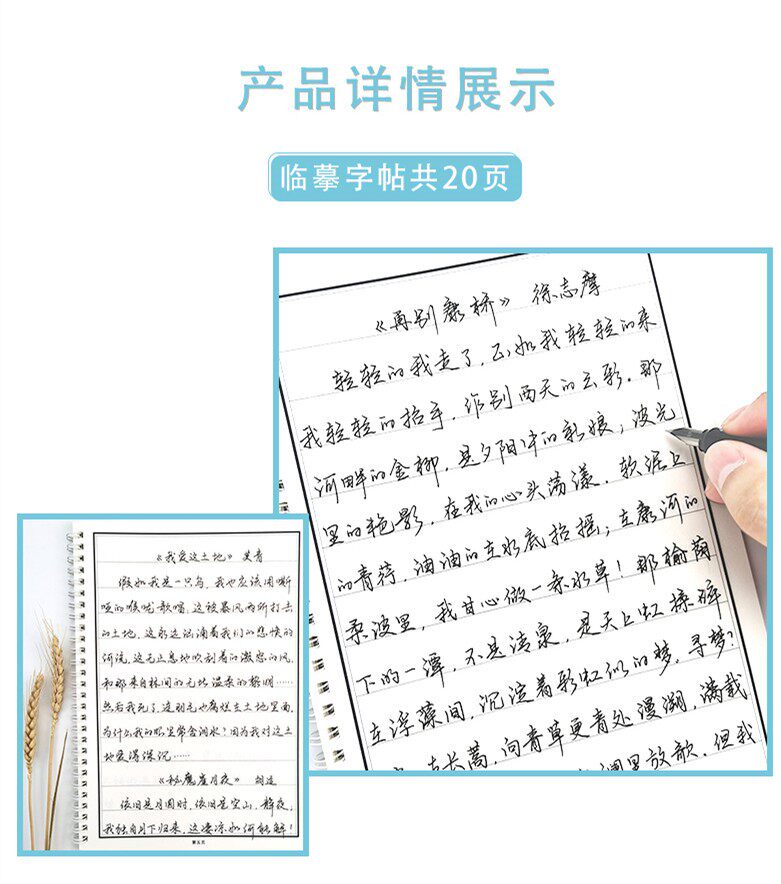 产品详情展示
临摹字帖共20页
《再别康桥》 徐志摩
轻轻的我走了，正如我轻轻的来
我轻轻的招手，作别西天的云彩。那
河畔的金柳，是夕阳中的新娘；波光
里的艳影，在我的心头荡漾。软泥上
的青荇，油油的在水底招摇；在康河的
柔波里，我甘心做一条水草！那榆荫
下的一潭，不是清泉，是天上虹揉碎
在浮藻间，沉淀着彩虹似的梦。寻梦？
支长蒿，向青草更青处漫溯，满载
里放歌，但我
《我爱这土地》 艾青
假如我是一只鸟，我也应该用嘶
哑的喉咙歌唱，这被暴风雨所打击
的土地，这永远汹涌着我们的悲愤的
河流，这无止息地吹刮着的激怒的风，
和那来自林间的无比温柔的黎明……
然后我死了，连羽毛也腐烂在土地里面，
为什么我的眼里常含泪水？因为我对这土
地爱得深沉……
《秘魔崖月夜》 胡适
依旧是月圆时，依旧是空山，静夜，
我独自月下归来，这凄凉如何能解！
第五页